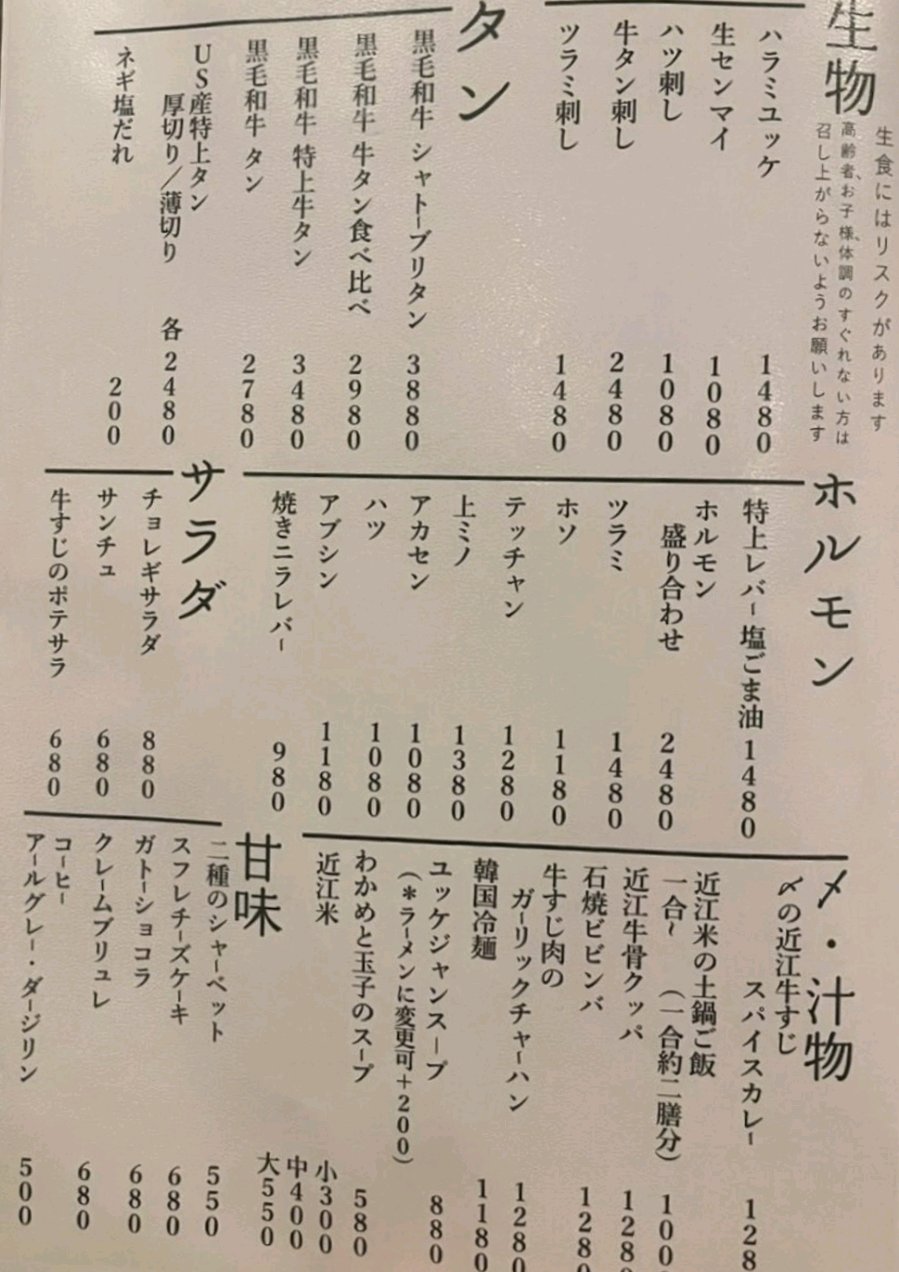 生物
生食にはリスクがあります
高齢者、お子様、体調のすぐれない方は
召し上がらないようお願いします
ハラミユッケ 1480
生センマイ 1080
ハツ刺し 1080
牛タン刺し 2480
ツラミ刺し 1480
タン
黒毛和牛 シャトーブリタン 3880
黒毛和牛 牛タン食べ比べ 2980
黒毛和牛 特上牛タン 3480
黒毛和牛 タン 2780
US産特上タン
厚切り/薄切り 各2480
ネギ塩だれ 200
ホルモン
特上レバー塩ごま油 1480
ホルモン
盛り合わせ 2480
ツラミ 1480
ホソ 1180
テッチャン 1280
上ミノ 1380
アカセン 1080
ハツ 1080
アブシン 1180
焼きニラレバー 980
サラダ
チョレギサラダ 880
サンチュ 680
牛すじのポテサラ 680
〆・汁物
〆の近江牛すじ
スパイスカレー 128
近江米の土鍋ご飯
一合~ (一合約二膳分) 100
近江牛骨クッパ 1280
石焼ビビンバ 1280
牛すじ肉の
ガーリックチャーハン 1280
韓国冷麺 1180
ユッケジャンスープ 880
(*ラーメンに変更可+200)
わかめと玉子のスープ 580
近江米 小300
中400
大550
甘味
二種のシャーベット 550
スフレチーズケーキ 680
ガトーショコラ 680
クレームブリュレ 680
コーヒー
アールグレー・ダージリン 500